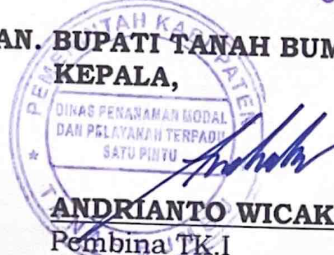 AN. BUPATI TANAH BUM
KEPALA,
PEMERINTAH KABUPATEN
DINAS PENANAMAN MODAL
DAN PELAYANAN TERPADU
SATU PINTU
ANDRIANTO WICAK
Pembina TK.I